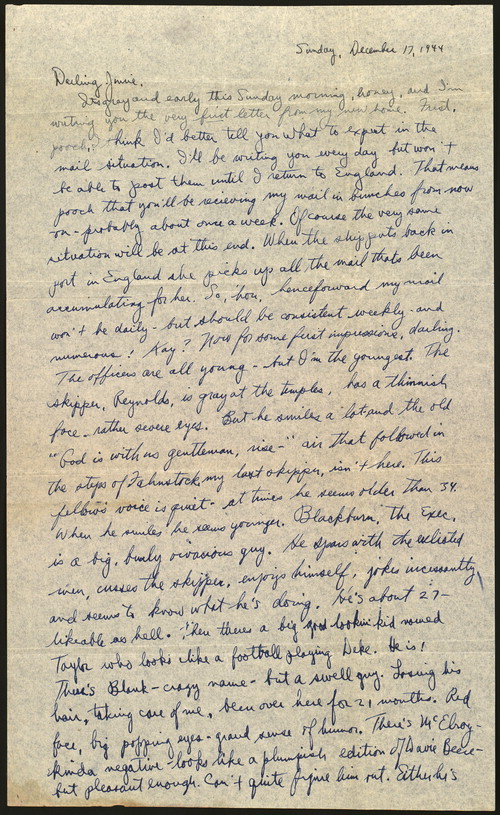 Sunday, December 17, 1944
Darling Junie,
It's grey and early this Sunday morning, honey, and I'm
writing you the very first letter from my new home. First,
pooch, I think I'd better tell you what to expect in the
mail situation. I'll be writing you every day but won't
be able to post them until I return to England. That means
pooch that you'll be recieving my mail in bunches from now
on - probably about once a week. Of course the very same
situation will be at this end. When the ship puts back in
port in England she picks up all the mail thats been
accumulating for her. So, hon, henceforward my mail
won't be daily - but should be consistent weekly - and
numerous! Kay? Now for some first impressions, darling.
The officers are all young - but I'm the youngest. The
skipper, Reynolds, is gray at the temples, has a thinnish
face - rather severe eyes. But he smiles a lot and the old
"God is with us gentleman, rise -" air that followed in
the steps of Fahnstock, my last skipper, isn't here. This
fellow's voice is quiet - at times he seems older than 34.
When he smiles he seems younger. Blackburn, the Exec,
is a big, burly vivacious guy. He spars with the enlisted
men, cusses the skipper, enjoys himself, jokes incessantly,
and seems to know what he's doing. He's about 27 -
likeable as hell. Then there's a big good lookin' kid named
Taylor who looks like a football playing Deke. He is!
There's Blank - crazy name - but a swell guy. Losing his
hair, taking care of me, been over here for 21 months. Red
face, big popping eyes - grand sense of humor. There's McElroy -
kinda negative - looks like a plumpish edition of Davie Beere -
but pleasant enough. Can't quite figure him out. Either he's